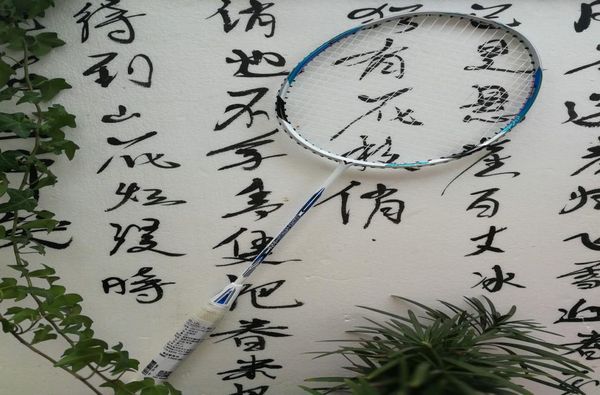 归飞雪迎春
已是悬崖百丈冰
犹有花枝俏
俏也不争春只把春来报
待到山花烂漫时